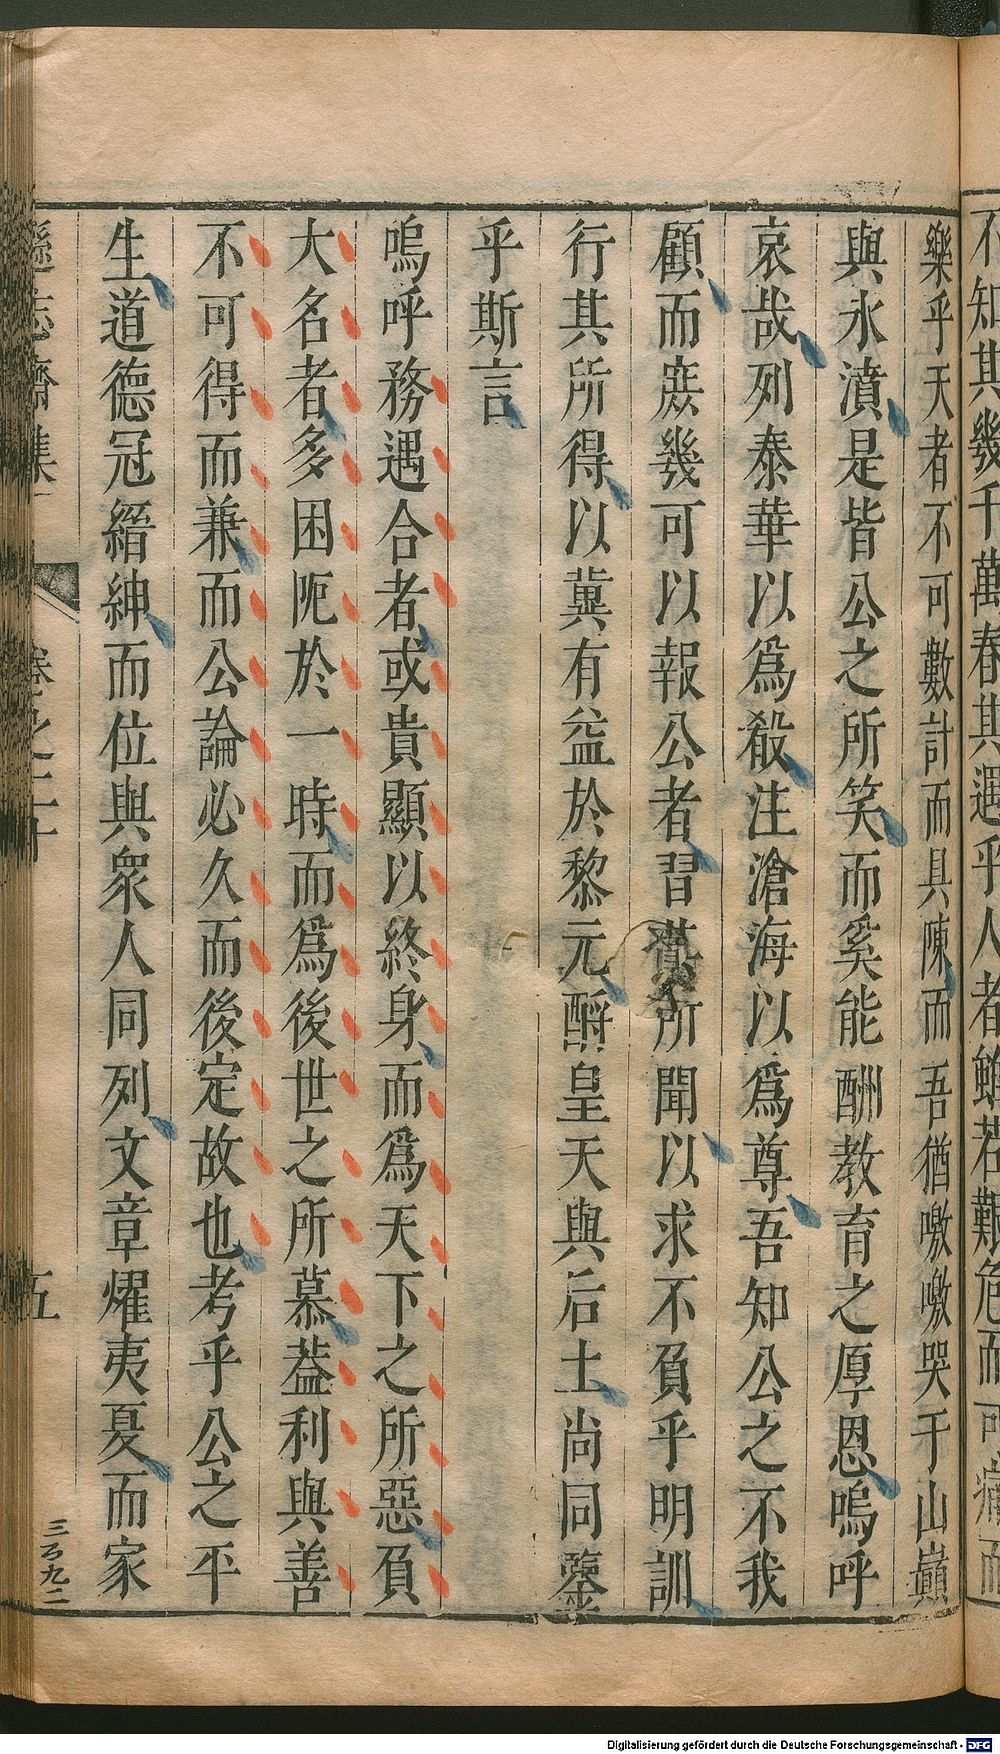 不知其幾千萬春其遇乎人者雖若艱危而可痛而
樂乎天者不可數計而具陳而吾猶噭噭哭于山巔
與水濆是皆公之所笑而奚能酬教育之厚恩嗚呼
哀哉列泰華以爲殽注滄海以爲尊吾知公之不我
顧而庶幾可以報公者習其所聞以求不負乎明訓
行其所得以冀有益於黎元酹皇天與后土尚同鑒
乎斯言
嗚呼務遇合者或貴顯以終身而爲天下之所惡負
大名者多困阨於一時而爲後世之所慕葢利與善
不可得而兼而公論必久而後定故也考乎公之平
生道德冠縉紳而位與衆人同列文章燿夷夏而家
遜志齋集
卷之二十
五
三百九二
Digitalisierung gefördert durch die Deutsche Forschungsgemeinschaft - DFG